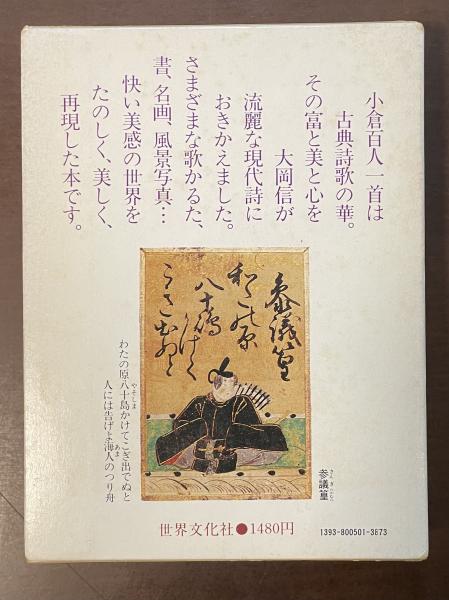 小倉百人一首は
古典詩歌の華。
その富と美と心を
大岡信が
流麗な現代詩に
おきかえました。
さまざまな歌かるた、
書、名画、風景写真…
快い美感の世界を
たのしく、美しく、
再現した本です。
参議篁
和たの原
八十嶋かけて
こきいてぬと
参議篁
さんぎたかむら
わたの原八十島かけてこぎ出でぬと
やそしま
人には告げよ海人のつり舟
あま
世界文化社●1480円
1393-800501-3673